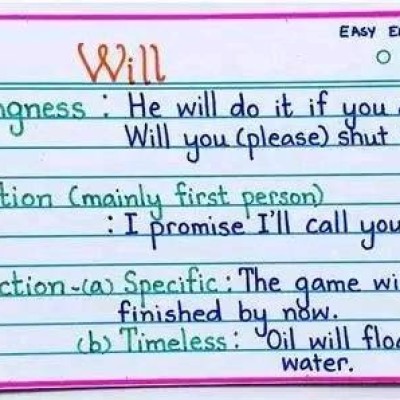 EASY
Will
: He will do it if you
Will you (please) shut
(mainly first person)
: I promise I'll call you
-(a) Specific : The game
finished by now.
(b) Timeless : Oil will
water.